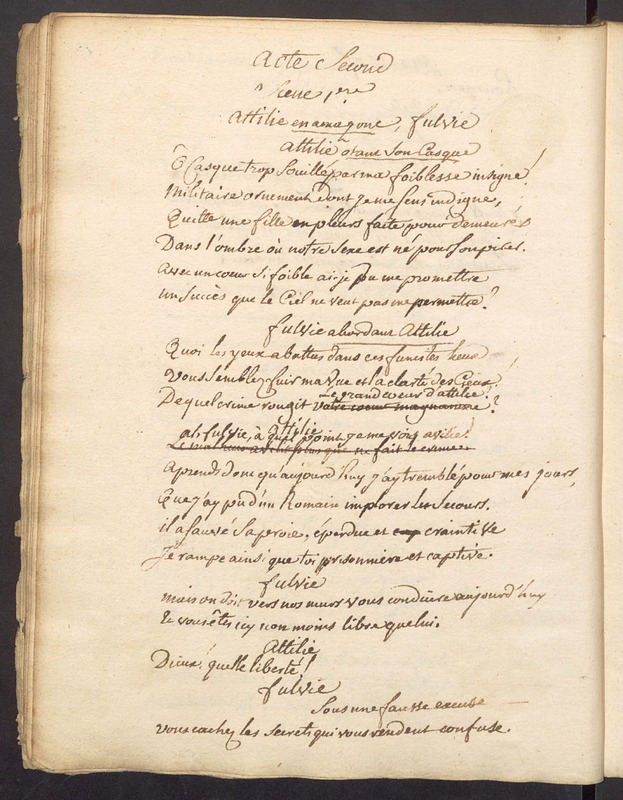 Acte Second
Scene 1ere
Attilie en amazone, fulvie
Attilie otant Son Casque
Ô Casque trop Souillé par ma foiblesse insigne!
Militaire ornement dont je me Sens indigne,
Quitte une fille en pleurs faite pour demeurer
Dans l'ombre où notre Sexe est né pour Soupirer.
avec un coeur Si foible ai-je pu me promettre
un Succès que le Ciel ne veut pas me permettre?
fulvie abordant Attilie
Quoi les yeux abattus dans ces funestes lieux
Vous Semblez fuir ma Vue et la clarté des Cieux!
Le grand coeur d'attilie?
De quel crime rougit votre coeur magnanime?
Attilie
ah fulvie, à quel point je me vois avilie!
Le malheur avilit plus que ne fait le crime
Aprends donc qu'aujourd'huy j'ay tremblé pour mes jours,
Que j'ay pu d'un Romain implorer le Secours.
il a Sauvé Sa proie, éperdue et craintive
Je rampe ainsi que toi prisonniere et captive.
fulvie
mais on doit vers nos murs vous conduire aujourd'huy
Et vous êtes icy non moins libre que lui.
Attilie
Dieux! quelle liberté!
fulvie
Sous une fausse excuse
vous cachez les Secrets qui vous rendent confuse.